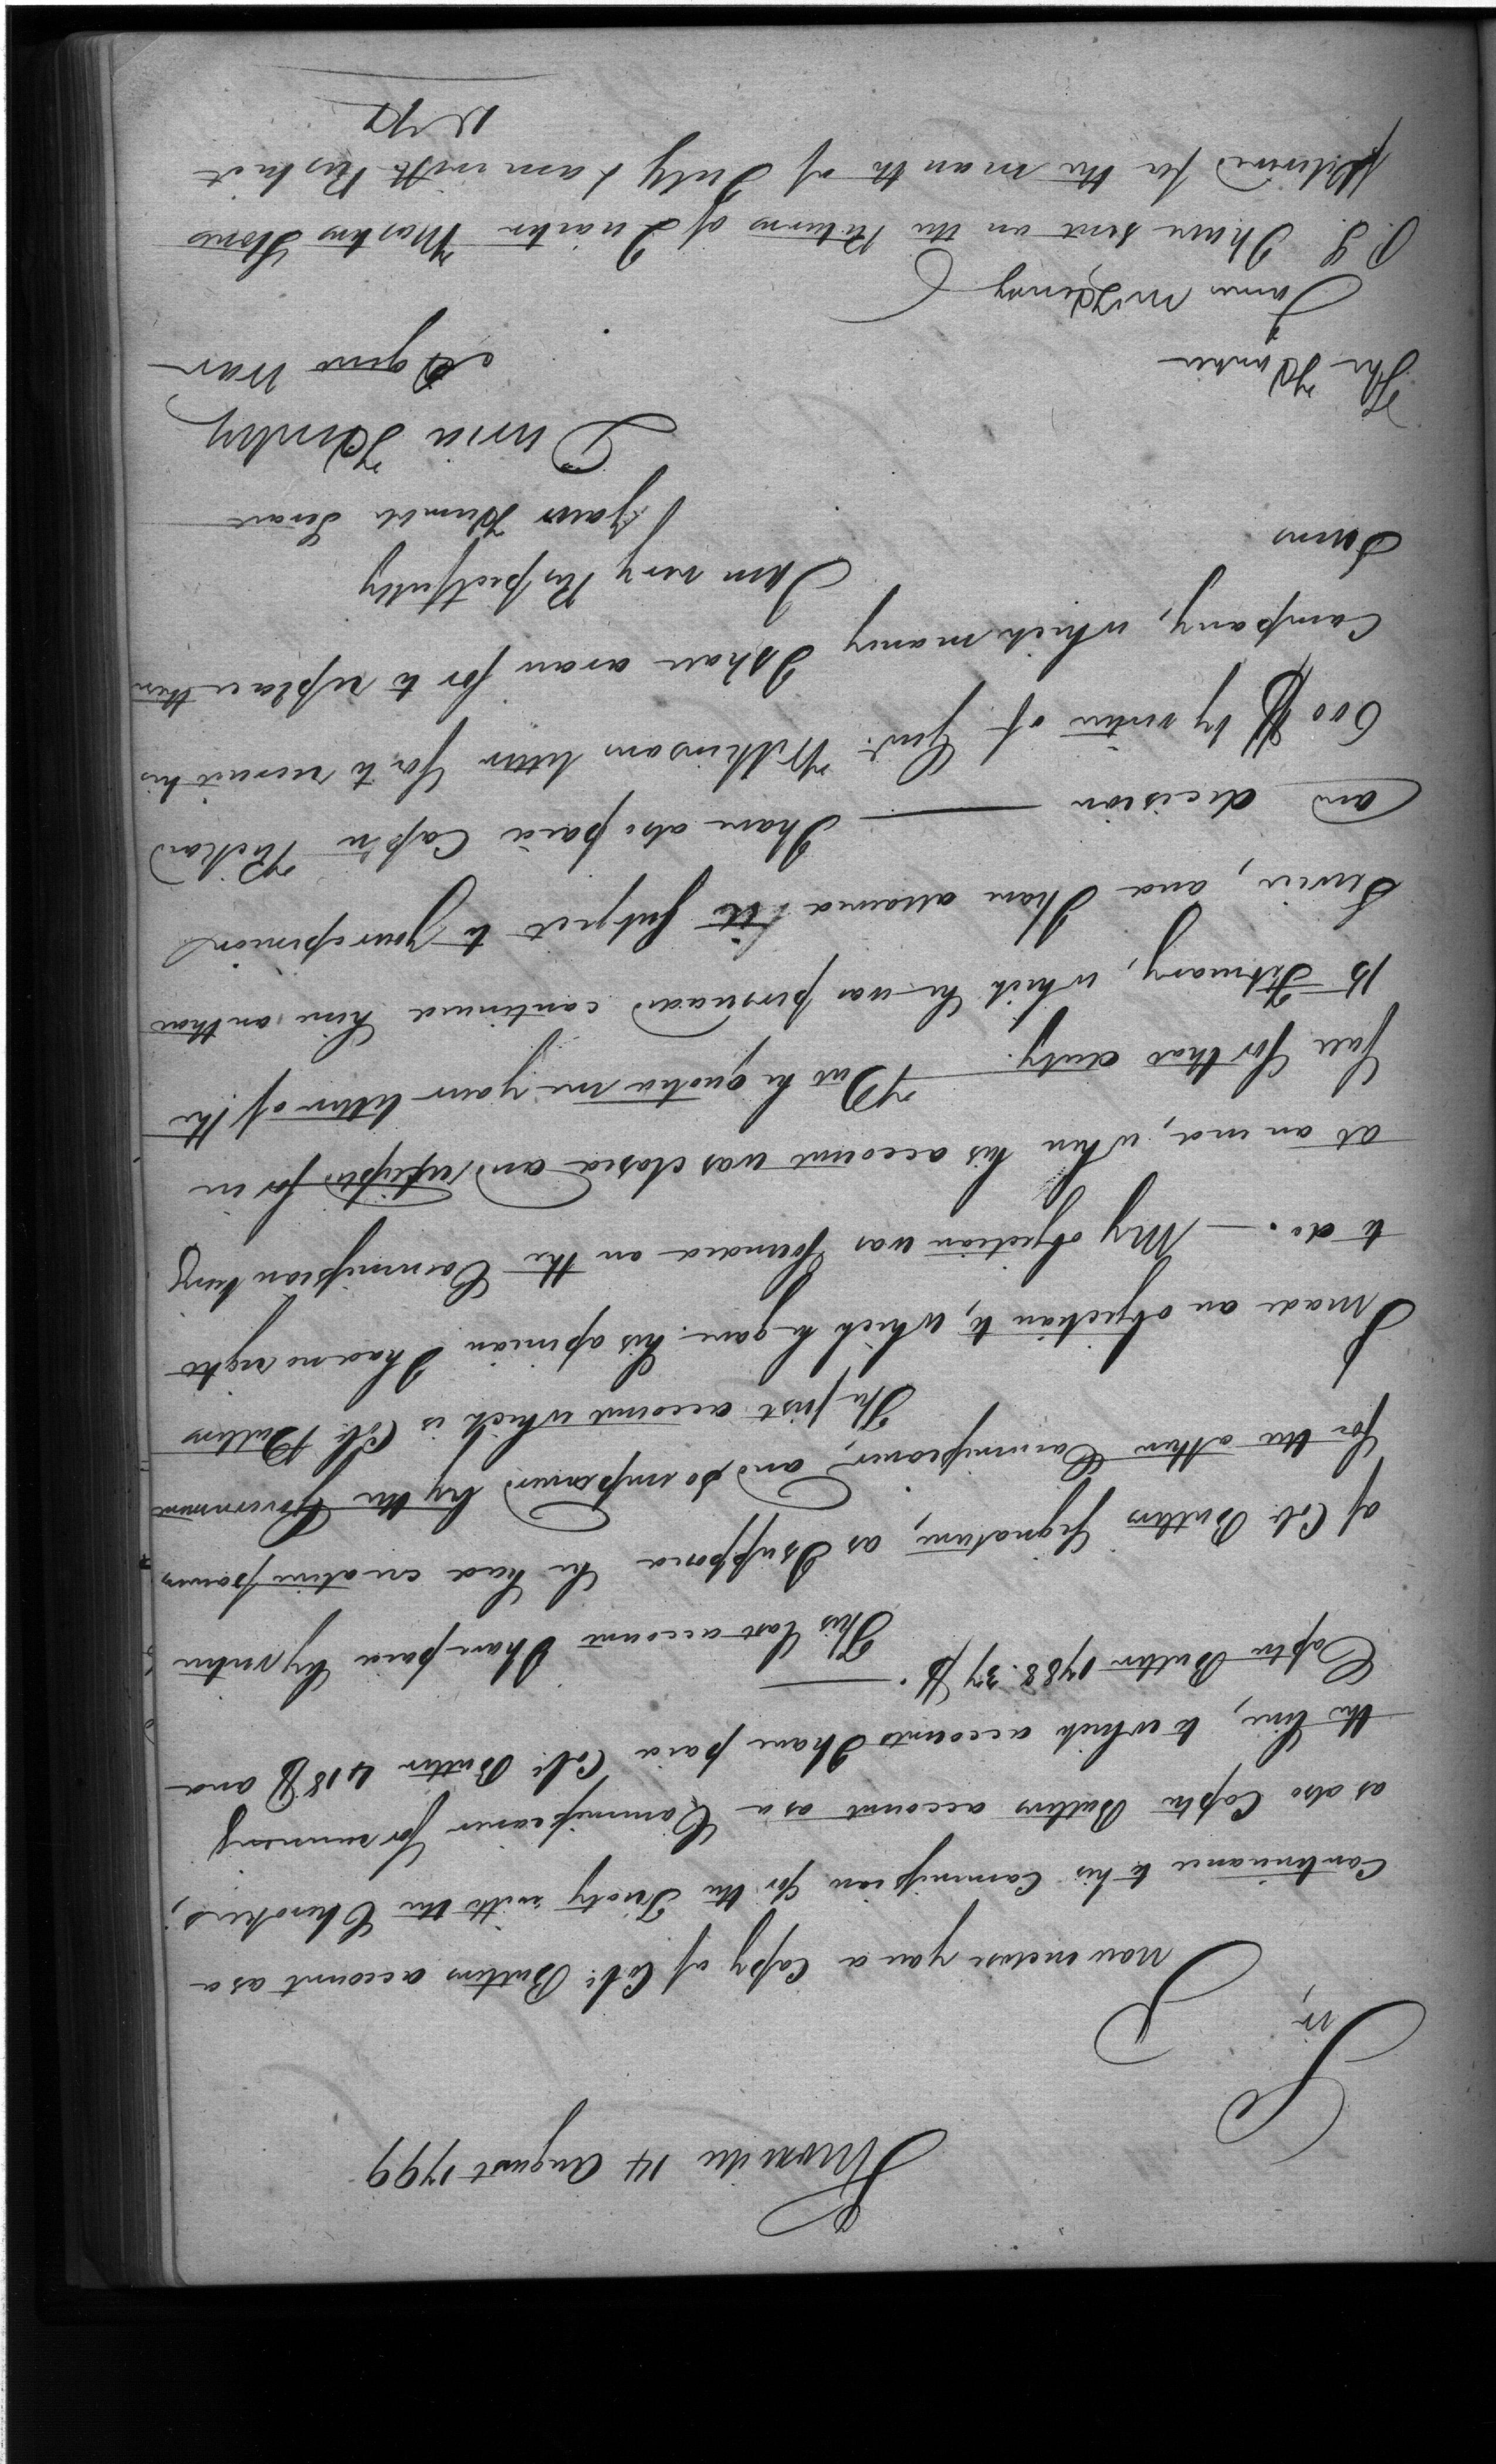 Knoxville 14 August 1799
Sir,
I now enclose you a Copy of Colo. Butlers account as a
Continuance to his Commission for the Treaty with the Cherokees,
as also Captn Butlers account as a Commissioner for running
the line, to which accounts I have paid Colo. Butler 418 $ and
Captn Butler 1788.37 $. — This last account I have paid by virtue
of Colo. Butlers Signature, as I supposed he had creative powers
for the other Commissioner, and so impowered by the Government
The first account which is Colo. Butlers
I made an objection to, which he gave his opinion I had no right
to do. — My objection was founded on the Commission being
at an end, when his account was closed and receipted for in
full for that duty. But he quoted me your letter of the
15 February, which he was persuaded continued him on that
Service, and I have allowed it Subject to your opinion
and decision — I have also paid Captn Richard
600 $ by virtue of Genl. Wilkinsons letter for to recruit his
Company, which money I shall draw for to replace them
Sums
I am very Respectfully
your Humble Servt
David Henley
Agent War
The Honble
James McHenry
P.S. I have sent on the Returns of Quarter Masters Stores
for the month of July & am with Respect
D H